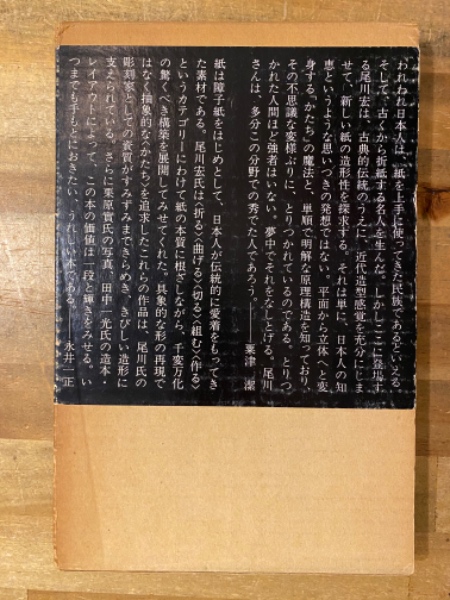 われわれ日本人は、紙を上手に使ってきた民族であるといえる。
そして、古くから折紙する名人を生んだ。しかしここに登場す
る尾川宏は、古典的伝統のうえに、近代造型感覚を充分にしま
せて、新しい紙の造形性を探求する。それは単に、日本人の知
恵というような思いつきの発想ではない。平面から立体へと変
身する〈かたち〉の魔法と、単順で明解な原理構造を知っており、
その不思議な変様ぶりに、とりつかれているのである。とりつ
かれた人間ほど強者はいない。夢中でそれをなしとげる。尾川
さんは、多分この分野での秀でた人であろう。――粟津 潔
紙は障子紙をはじめとして、日本人が伝統的に愛着をもってき
た素材である。尾川宏氏は〈折る〉〈曲げる〉〈切る〉〈組む〉〈作る〉
というカテゴリーにわけて紙の本質に根ざしながら、千変万化
の驚くべき構築を展開してみせてくれた。具象的な形の再現で
はなく抽象的な〈かたち〉を追求したこれらの作品は、尾川氏の
彫刻家としての資質がすみずみまできらめき、きびしい造形に
支えられている。さらに栗原實氏の写真、田中一光氏の造本・
レイアウトによって、この本の価値は一段と輝きをみせる。い
つまでも手もとにおきたい、うれしい本である。――永井一正